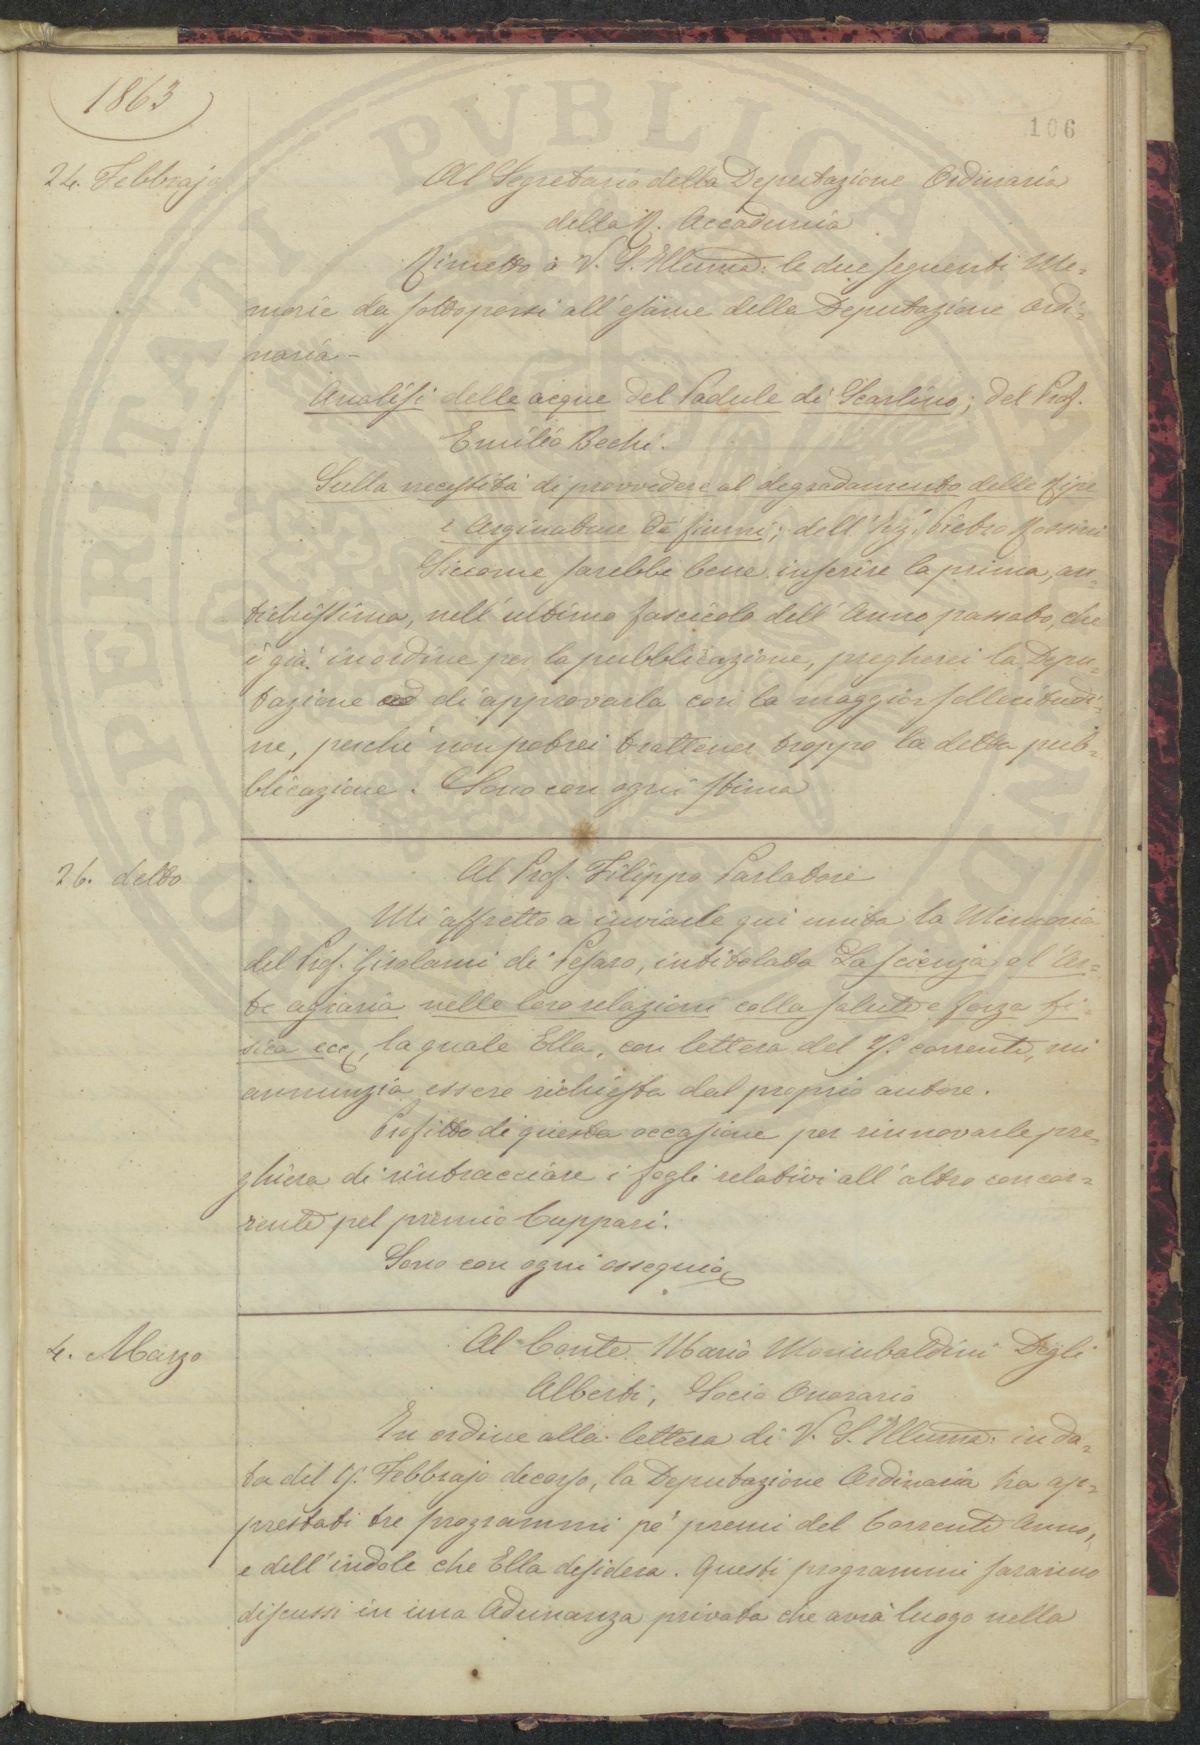 1863
106
24. Febbrajo
Al Segretario della Deputazione Ordinaria
della R. Accademia
Rimetto a V. S. Illuma: le due seguenti Me=
morie da sottoporsi all'esame della Deputazione Ordi=
naria –
Analisi delle acque del Padule di Scarlino; del Prof.
Emilio Bechi.
Sulla necessità di provvedere al degradamento delle Ripe
e Arginature de' fiumi; dell'Ing. Pietro Rossini
Siccome sarebbe bene inserire la prima, an=
tichissima, nell'ultimo fascicolo dell'Anno passato, che
è già in ordine per la pubblicazione, pregherei la Depu=
tazione ad di approvarla con la maggior sollecitudi=
ne, perchè non potrei trattener troppo la detta pub=
blicazione. Sono con ogni stima
26. detto
Al Prof. Filippo Parlatore
Mi affretto a inviarle qui unita la Memoria
del Prof. Girolami di Pesaro, intitolata La scienza e l'Ar=
te agraria nelle loro relazioni colla salute e forza fi=
sica ecc, la quale Ella, con lettera del corrente, mi
annunzia essere richiesta dal proprio autore.
Profitto di questa occasione per rinnovarle pre=
ghiera di rintracciare i fogli relativi all'altro concor=
rente pel premio Cuppari.
Sono con ogni ossequio
4. Marzo
Al Conte Mario Mori Degli
Alberti, Socio Onorario
In ordine alla lettera di V. S. Illuma: in da=
ta del Febbrajo decorso, la Deputazione Ordinaria ha ap=
prestati tre programmi pe' premi del Corrente Anno,
e dell'indole che Ella desidera. Questi programmi saranno
discussi in una Adunanza privata che avrà luogo nella